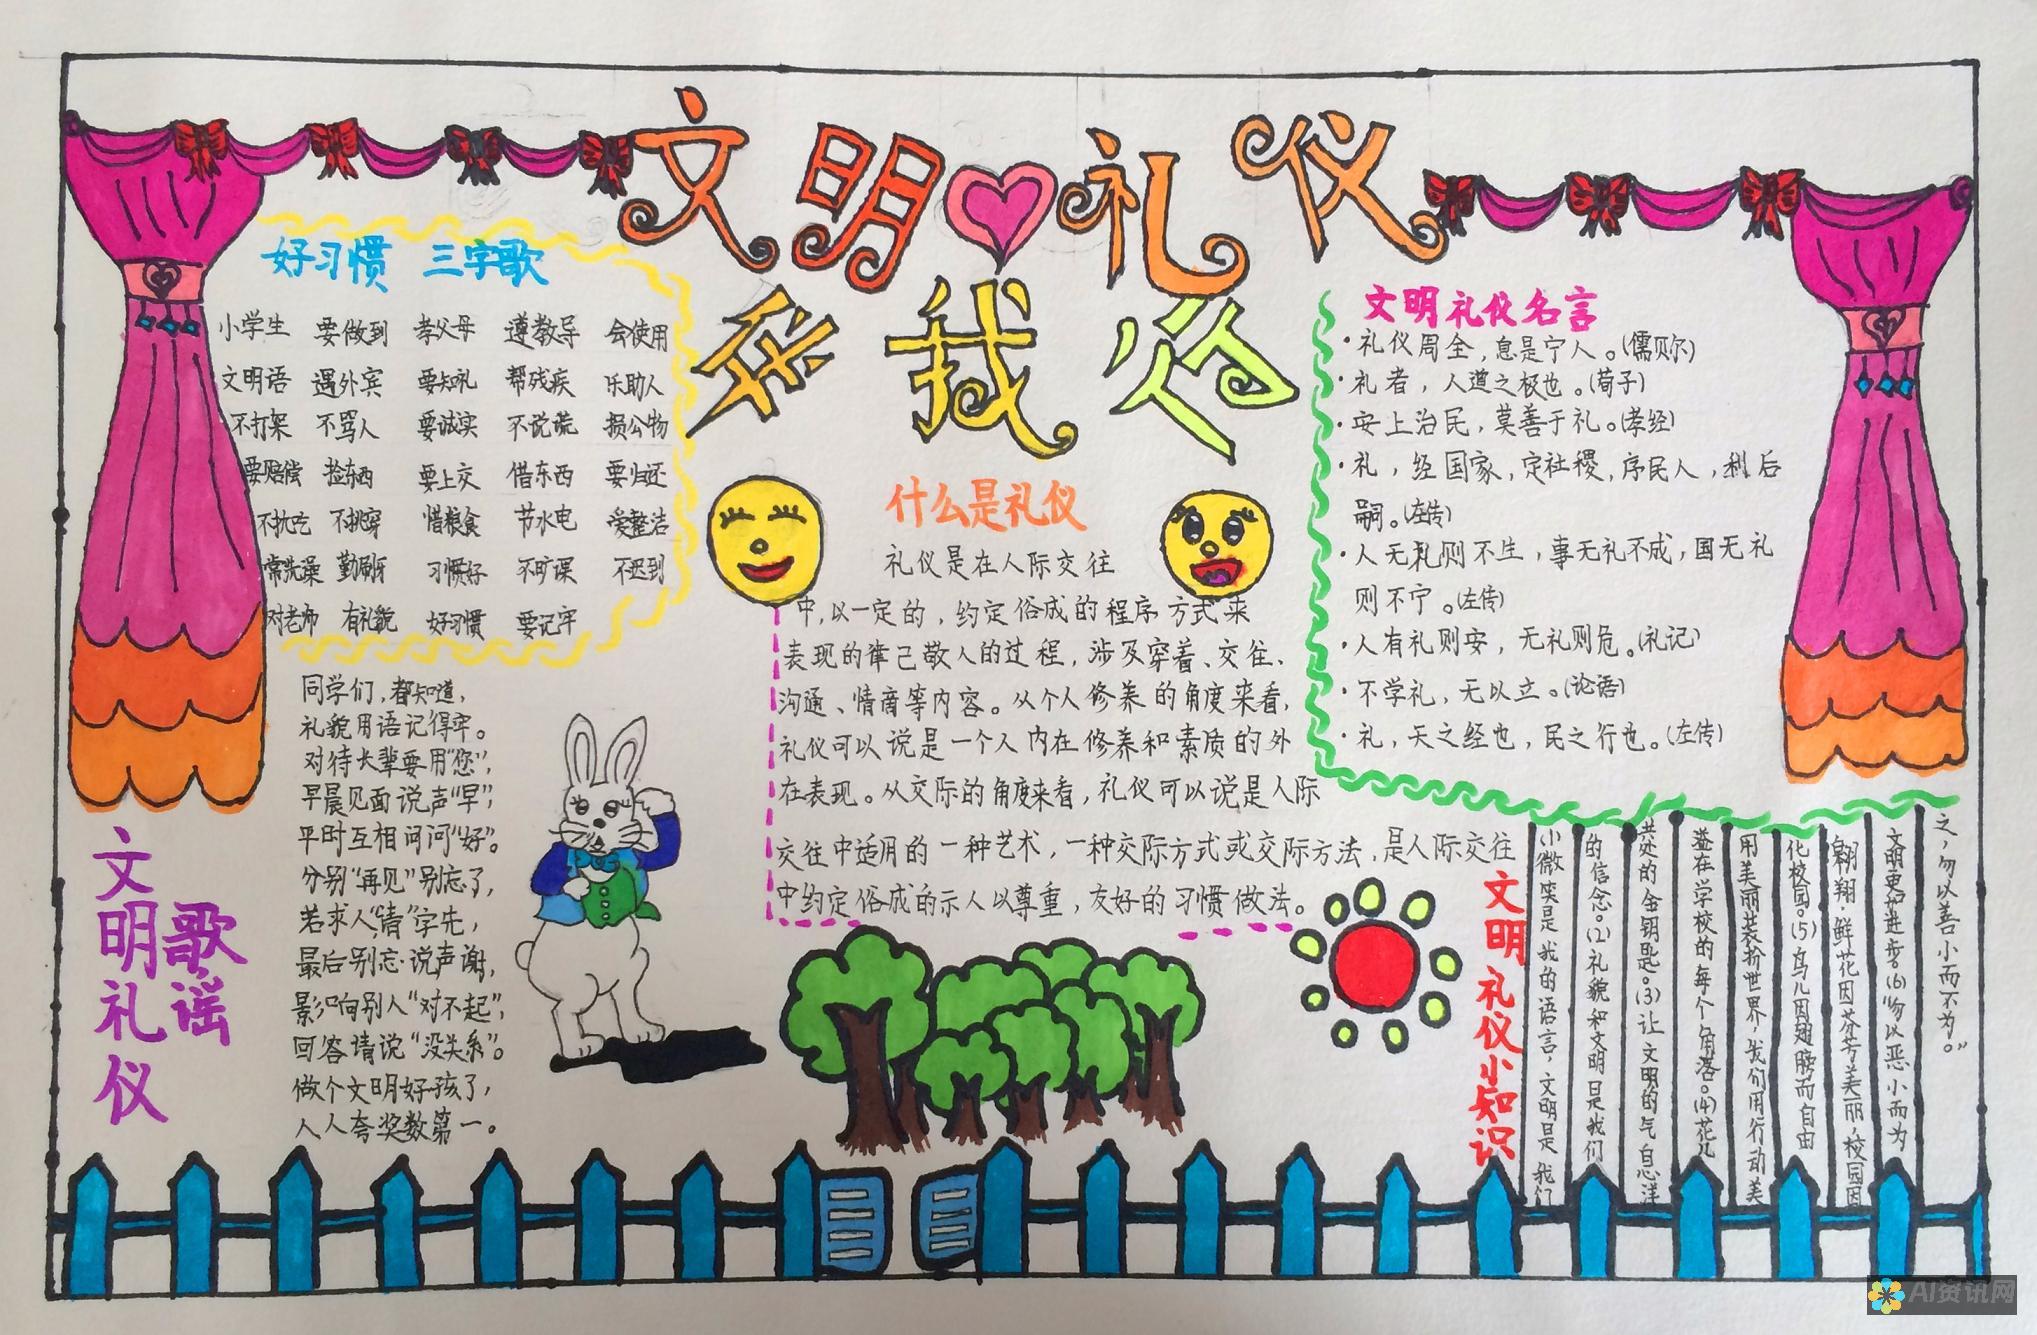 文明礼仪
在我心
好习惯 三字歌
小学生 要做到 孝父母 遵教导 会使用
文明语 遇外宾 要知礼 帮残疾 乐助人
不打架 不骂人 要诚实 不说谎 损公物
要赔偿 捡东西 要上交 借东西 要归还
不扰吃 不挑穿 惜粮食 节水电 爱整洁
常洗澡 勤刷牙 习惯好 不旷课 不迟到
对老师 有礼貌 好习惯 要记牢
文明礼仪
歌谣
同学们，都知道，
礼貌用语记得牢。
对待长辈要用“您”，
早晨见面说声“早”，
平时互相问问“好”。
分别“再见”别忘了，
若求人“请”字先，
最后别忘说声谢，
影响别人“对不起”，
回答请说“没关系”。
做个文明好孩了，
人人夸奖数第一。
什么是礼仪
礼仪是在人际交往
中，以一定的，约定俗成的程序方式来
表现的律己敬人的过程，涉及穿着、交往、
沟通、情商等内容。从个人修养的角度来看，
礼仪可以说是一个人内在修养和素质的外
在表现。从交际的角度来看，礼仪可以说是人际
交往中适用的一种艺术，一种交际方式或交际方法，是人际交往
中约定俗成的示人以尊重，友好的习惯做法。
文明礼仪名言
·礼仪周全，息是宁人。(儒贝尔)
·礼者，人道之极也。(荀子)
·安上治民，莫善于礼。(孝经)
·礼，经国家，定社稷，序民人，利后
嗣。(左传)
·人无礼则不生，事无礼不成，国无礼
则不宁。(左传)
·人有礼则安，无礼则危。(礼记)
·不学礼，无以立。(论语)
·礼，天之经也，民之行也。(左传)
文明礼仪小知识
小微笑是我的语言，文明是我们
的信念。(2)礼貌和文明是我们
共处的金钥匙。(3)让文明的气息洋
溢在学校的每个角落。(4)花儿
用美丽装扮世界，我们用行动美
化校园。(5)鸟儿因翅膀而自由
翱翔，鲜花因芬芳美丽，校园因
文明更加进步。(6)“勿以恶小而为
之，勿以善小而不为。”
AI资讯网